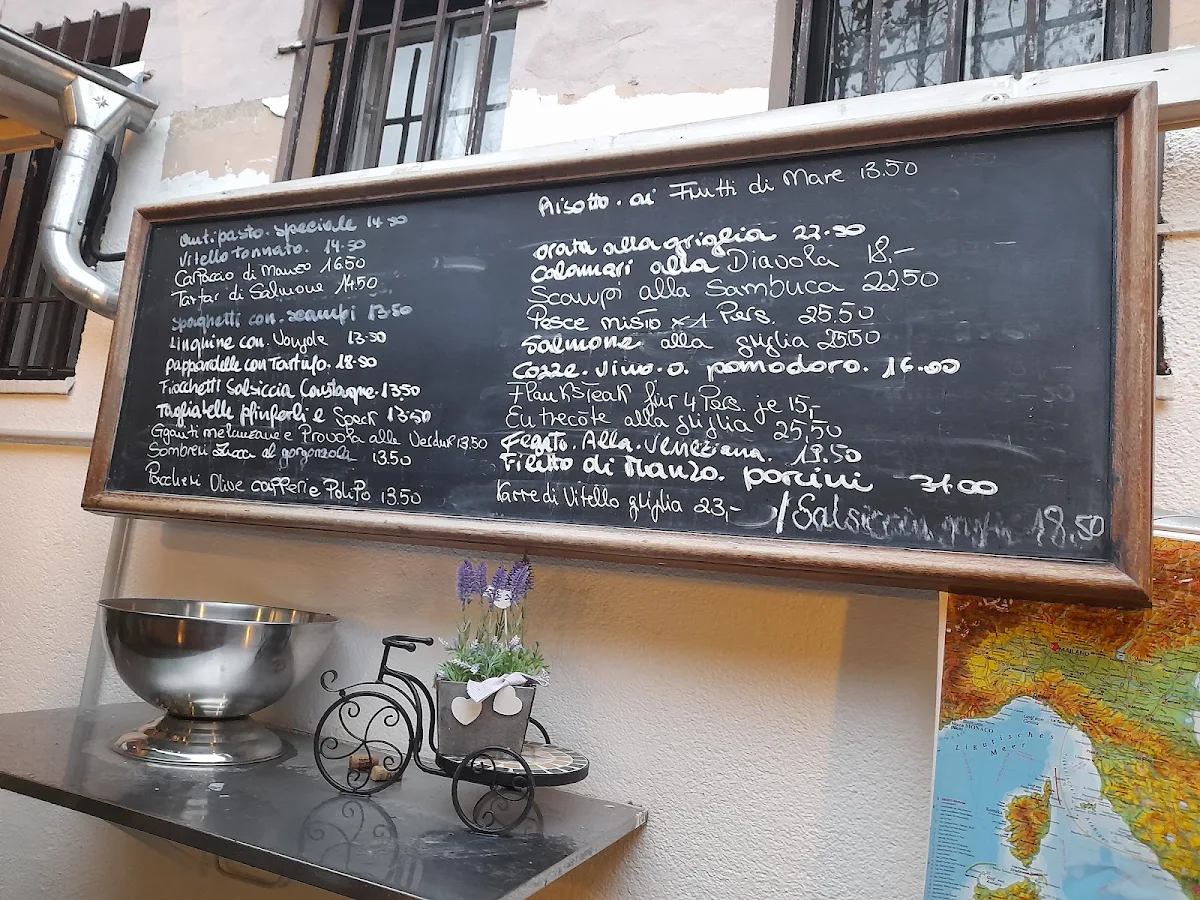 antipasto. speciale 14.50
Vitello tonnato. 14.50
Carpaccio di Manzo 16.50
Tartar di Salmone 14.50
spaghetti con. scampi 13.50
Linguine con. Vongole 13.50
pappardelle con Tartufo. 18.50
Fiocchetti Salsiccia Castagne. 13.50
Tagliatelle pfinferli e Speck 13.50
Giganti melanzane e Provola alle Verdure 13.50
Sombreri al gorgonzola 13.50
Paccheri Olive capperi e Polipo 13.50
Risotto. ai Frutti di Mare 13.50
orata alla griglia 22.50
calamari alla Diavola 18,-
Scampi alla Sambuca 22.50
Pesce misto x1 Pers. 25.50
Salmone alla griglia 25.50
cozze. vino. o. pomodoro. 16.00
Flanksteak für 4 Pers. je 15,-
Entrecôte alla griglia 25,50
Fegato. Alla. veneziana. 18.50
Filetto di Manzo. porcini 31.00
Karre di Vitello griglia 23,-
/ Salsiccia 18,50
MAILAND
MONACO
Ligurisches
Meer